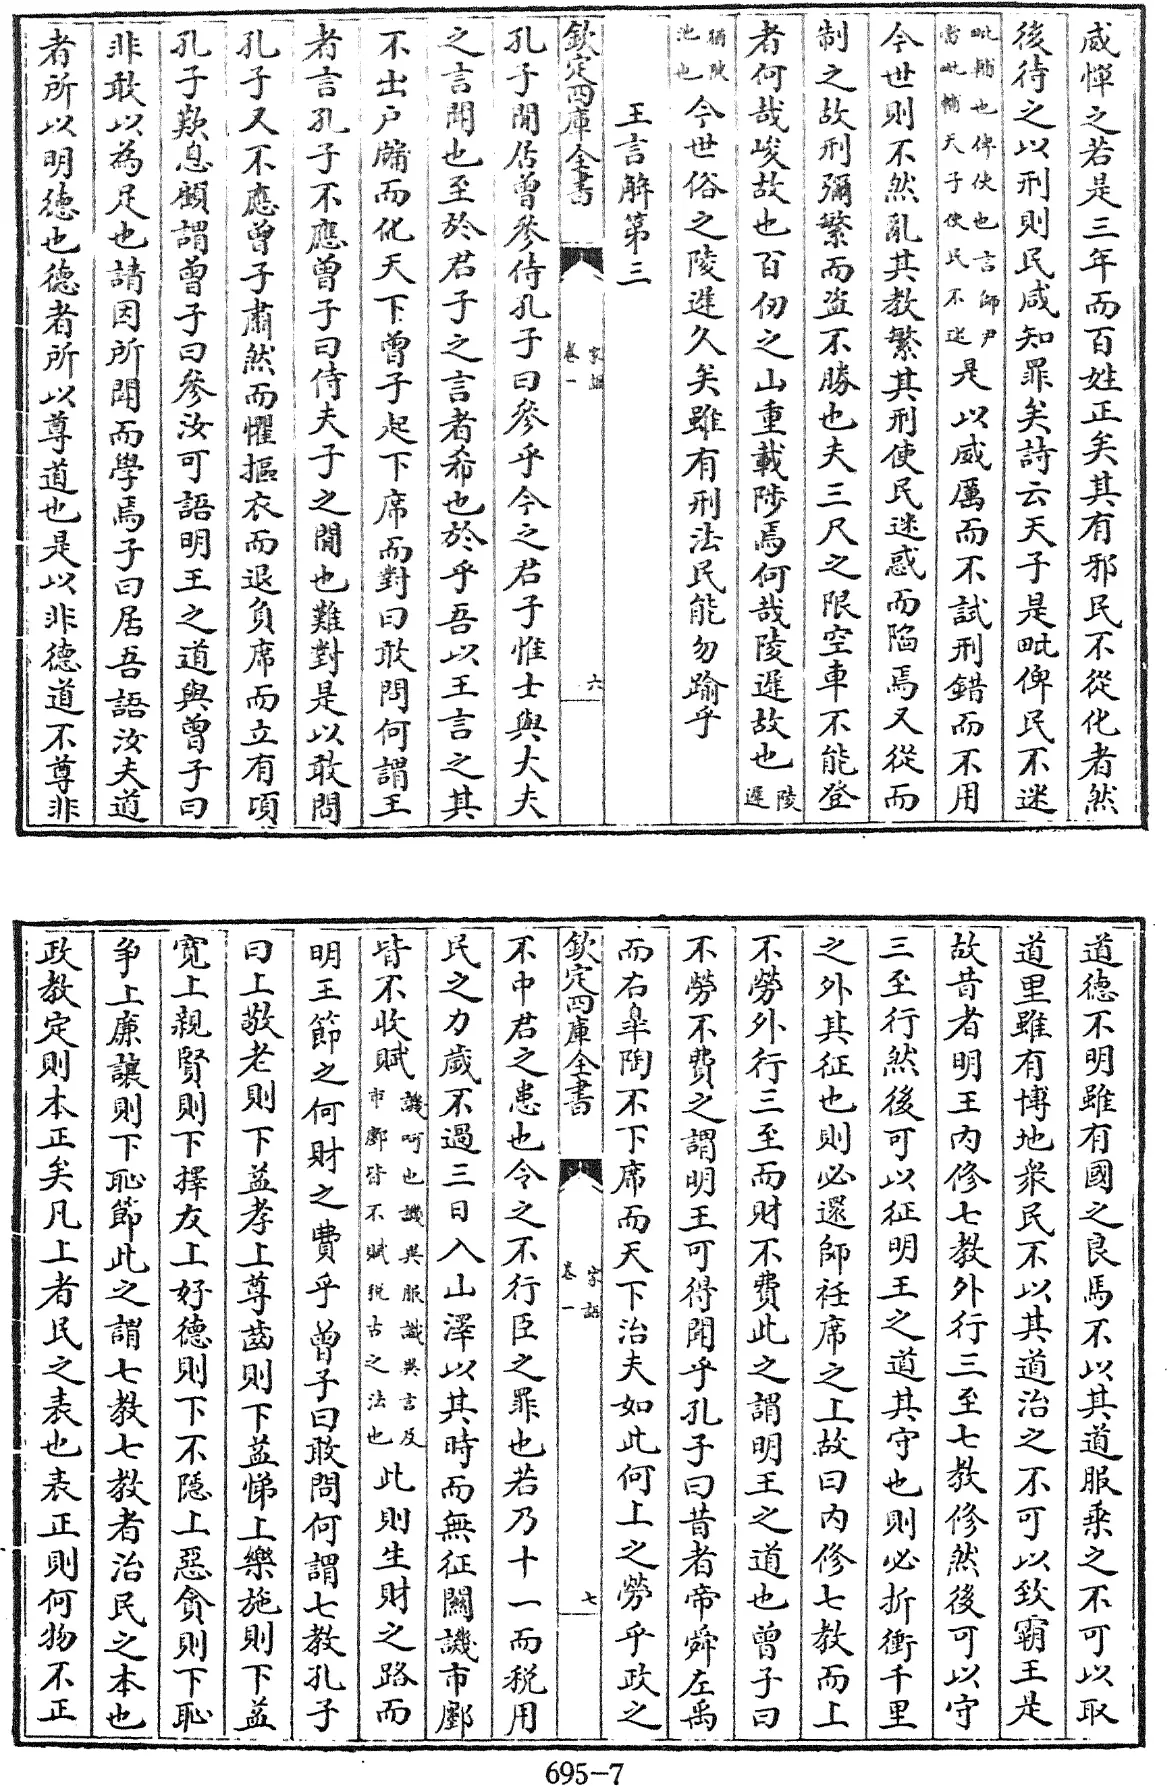 威憚之若是三年而百姓正矣其有邪民不從化者然
後待之以刑則民咸知罪矣詩云天子是毗俾民不迷
毗輔也俾使也言師尹
當毗輔天子使民不迷
是以威厲而不試刑錯而不用
今世則不然亂其教繁其刑使民迷惑而陷焉又從而
制之故刑彌繁而盗不勝也夫三尺之限空車不能登
者何哉峻故也百仞之山重載陟焉何哉陵遲故也
陵遲
猶陂
池也
今世俗之陵遲久矣雖有刑法民能勿踰乎
王言解第三
欽定四庫全書
家語
卷一
六
孔子閒居曾參侍孔子曰參乎今之君子惟士與大夫
之言聞也至於君子之言者希也於乎吾以王言之其
不出戶牖而化天下曾子起下席而對曰敢問何謂王
者言孔子不應曾子曰侍夫子之閒也難對是以敢問
孔子又不應曾子肅然而懼摳衣而退負席而立有頃
孔子歎息顧謂曾子曰參汝可語明王之道與曾子曰
非敢以為足也請因所聞而學焉子曰居吾語汝夫道
者所以明德也德者所以尊道也是以非德道不尊非
道德不明雖有國之良馬不以其道服乘之不可以取
道里雖有博地衆民不以其道治之不可以致霸王是
故昔者明王内修七教外行三至七教修然後可以守
三至行然後可以征明王之道其守也則必折衝千里
之外其征也則必還師衽席之上故曰内修七教而上
不勞外行三至而財不費此之謂明王之道也曾子曰
不勞不費之謂明王可得聞乎孔子曰昔者帝舜左禹
而右臯陶不下席而天下治夫如此何上之勞乎政之
欽定四庫全書
家語
卷一
七
不中君之患也令之不行臣之罪也若乃十一而税用
民之力歲不過三日入山澤以其時而無征關譏市鄽
皆不收賦
譏呵也譏異服識異言及
市鄽皆不賦税古之法也
此則生財之路而
明王節之何財之費乎曾子曰敢問何謂七教孔子
曰上敬老則下益孝上尊齒則下益悌上樂施則下益
寛上親賢則下擇友上好德則下不隱上惡貪則下恥
爭上廉讓則下恥節此之謂七教七教者治民之本也
政教定則本正矣凡上者民之表也表正則何物不正
695-7